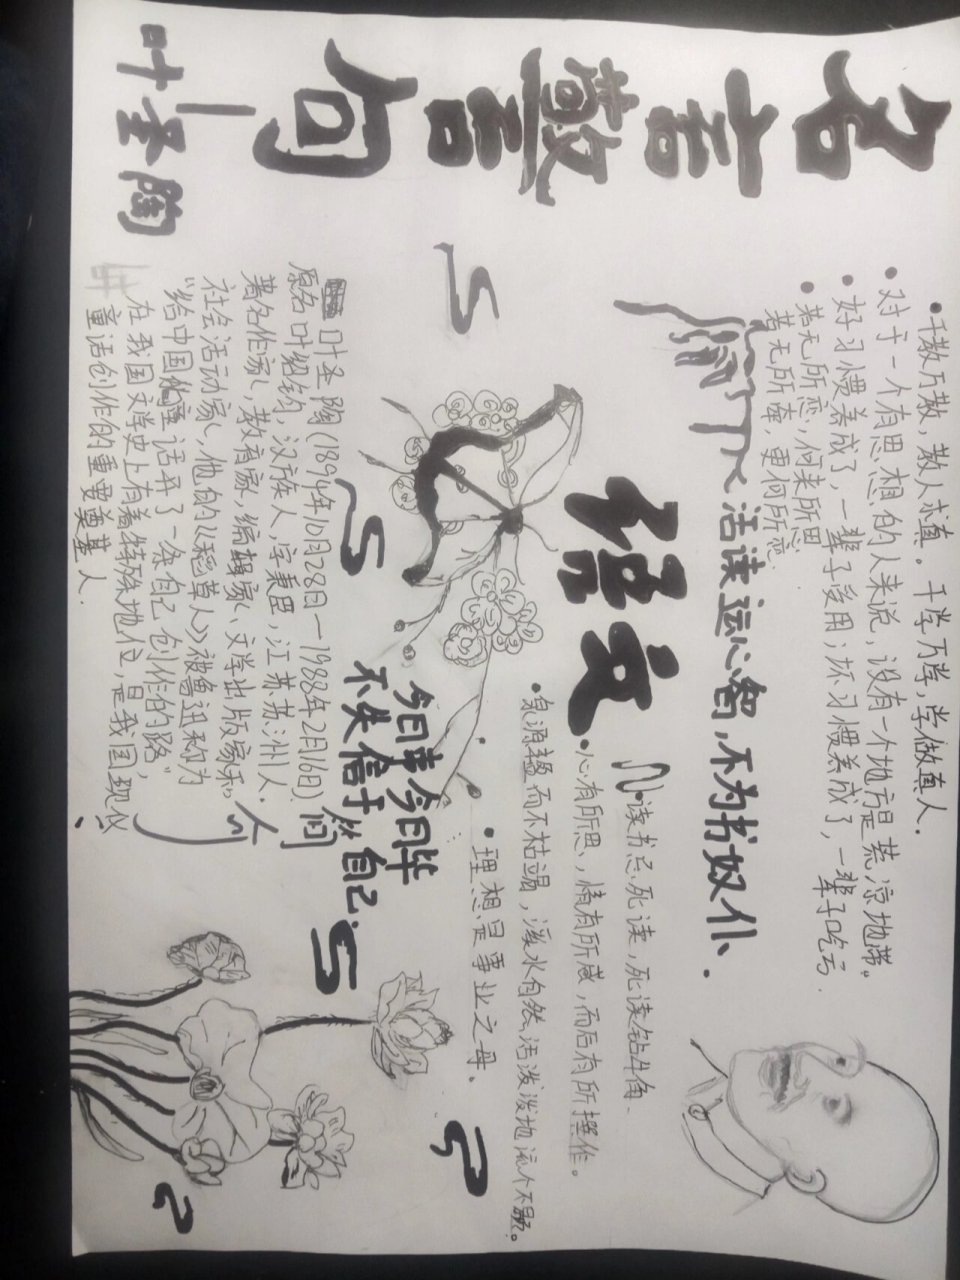 名言警句
叶圣陶
•千教万教，教人求真。千学万学，学做真人．
•对于一个有思想的人来说，没有一个地方是荒凉地带。
•好习惯养成了，一辈子受用；坏习惯养成了，一辈子吃亏．
•若无所恋，何来所思
若无所牵 更何所恋
活读运心智，不为书奴仆．
语文
•读书忌死读，死读钻牛角．
•心有所思，情有所感，而后有所撰作。
•泉源盈而不枯竭，溪水自然活泼泼地流个不歇。
•理想是事业之母．
今日事今日毕
不失信于 自己．
叶圣陶（1894年10月28日—1988年2月16日）
原名叶绍钧，汉族人，字秉臣，江苏苏州人．
著名作家，教育家，编辑家，文学出版家和
社会活动家，他的《稻草人》被鲁迅称为
“给中国的童话开了一条自己创作的路”，
在我国文学史上有着特殊地位，是我国现代
童话创作的重要奠基人．